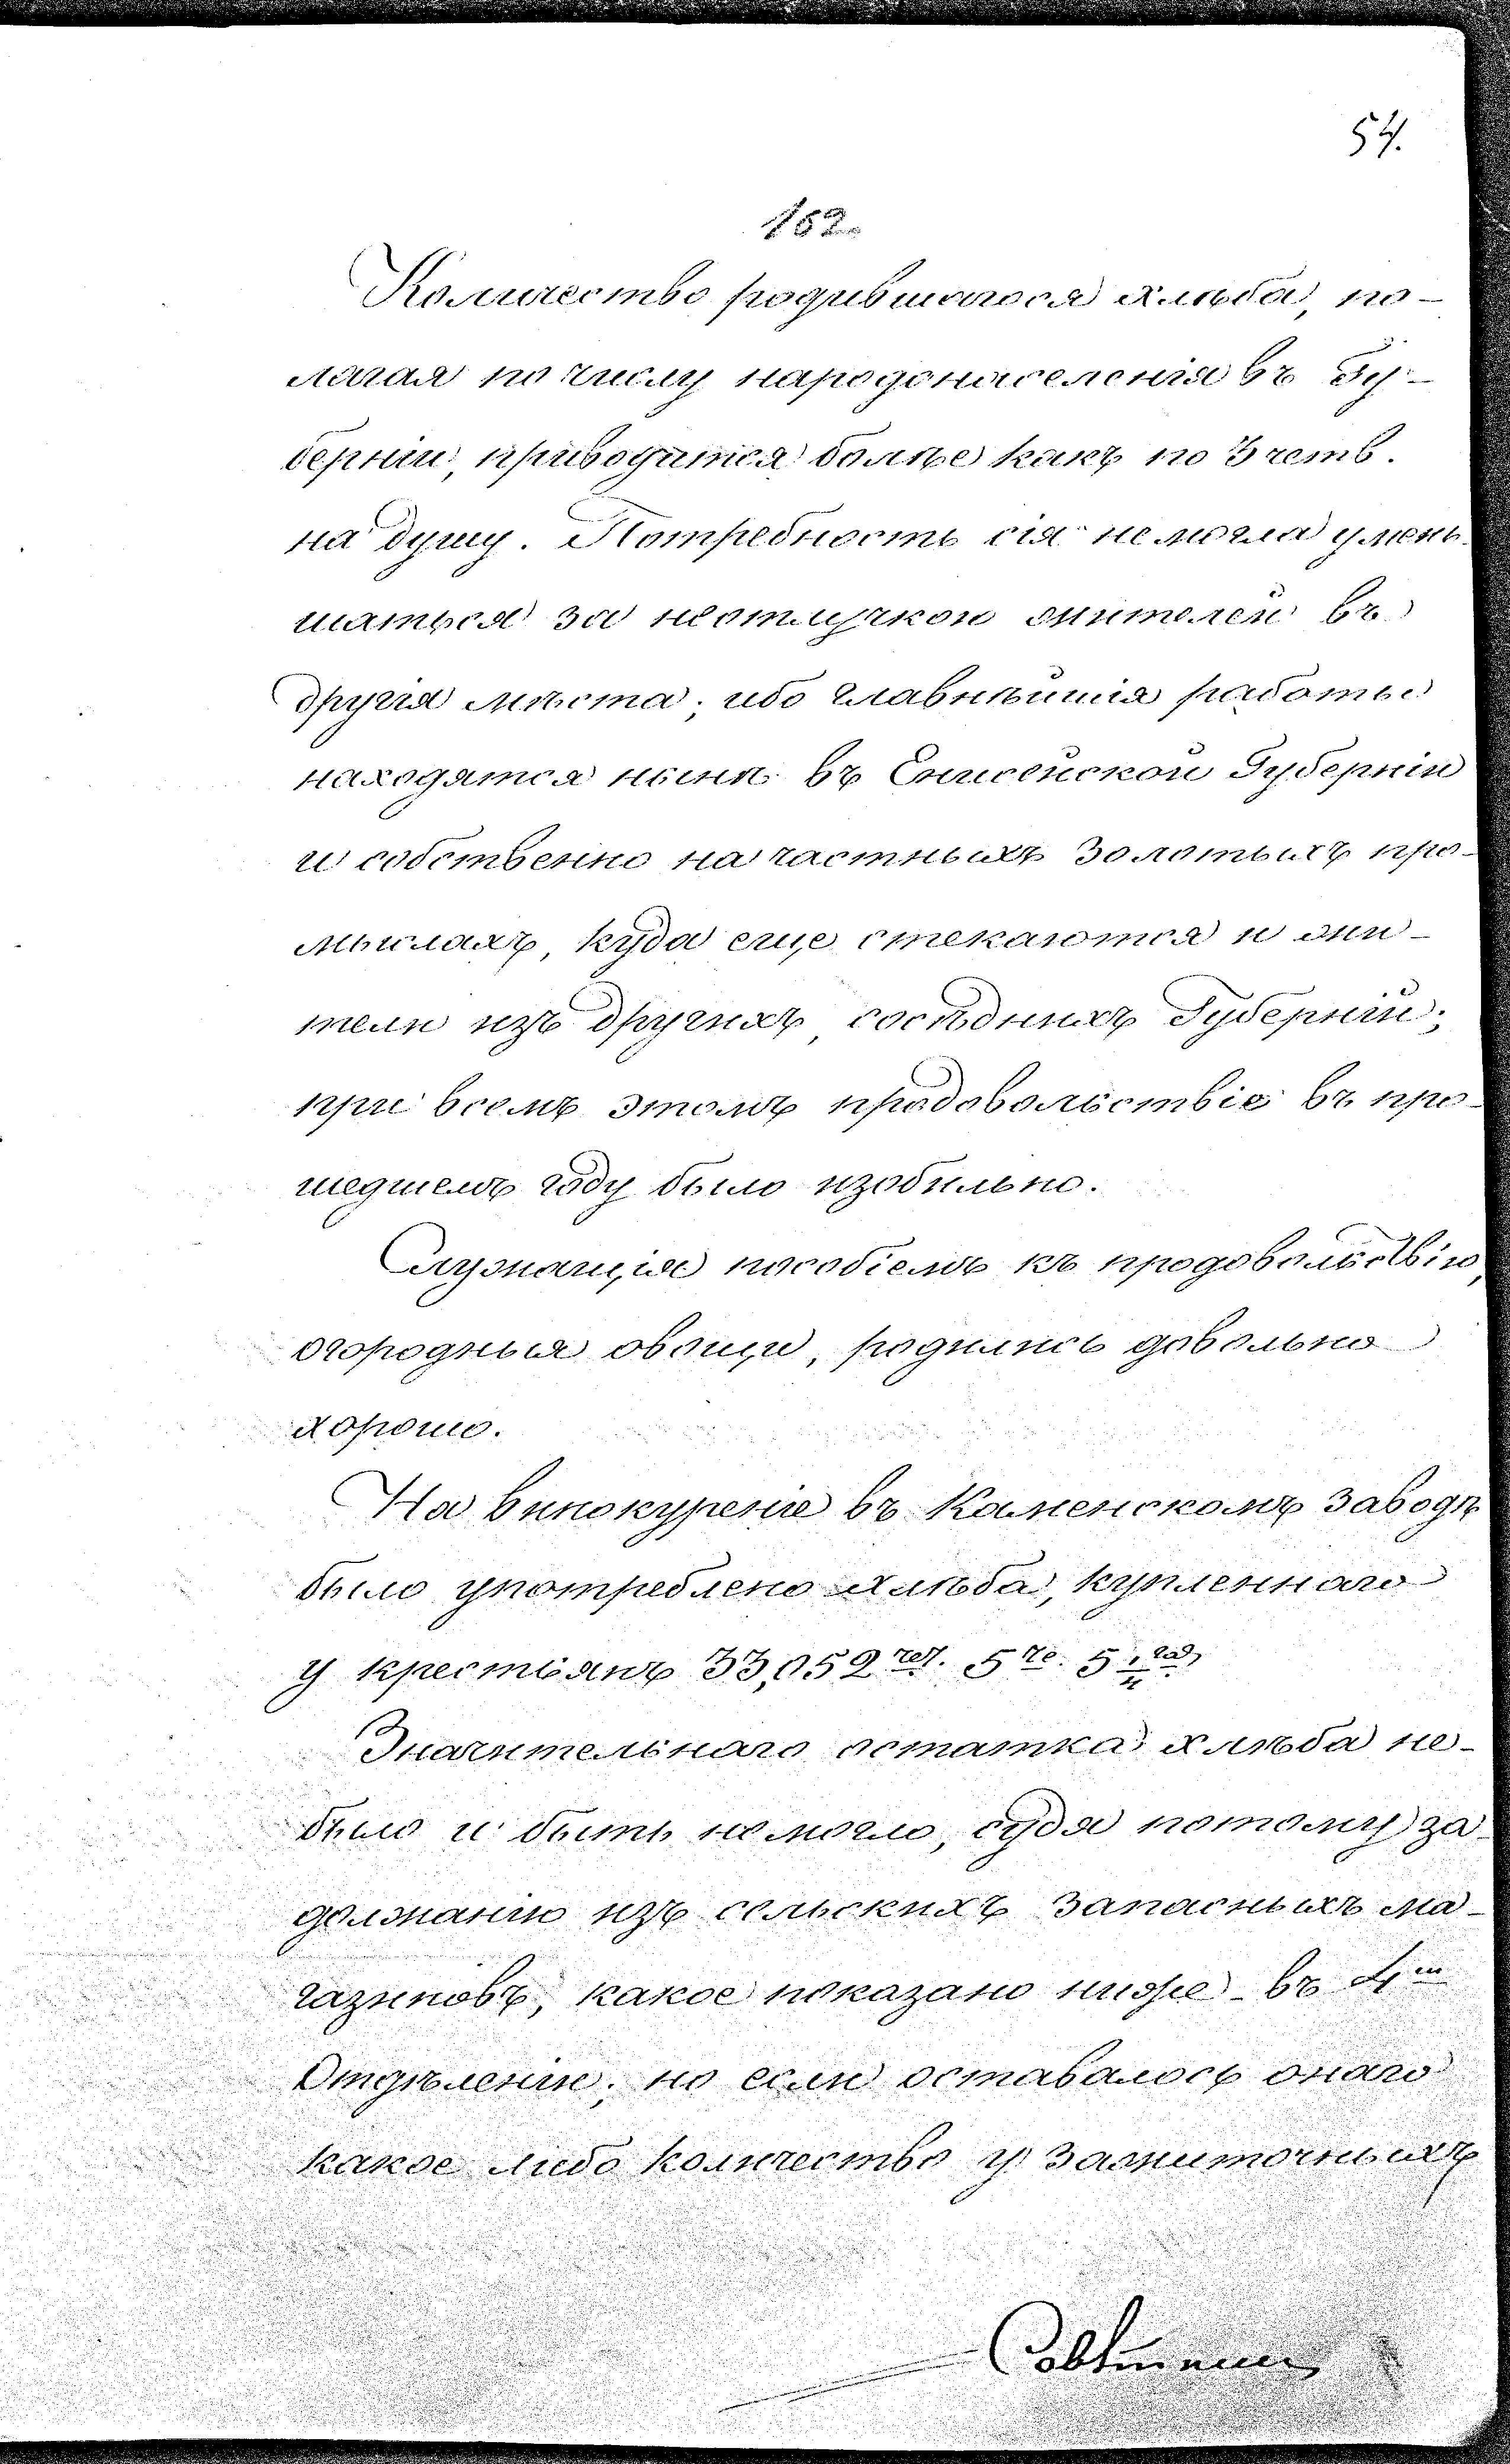 54.
162.
Количество родившагося хлѣба, по-
лагая по числу народонаселенія въ Гу-
берніи, приводится болѣе какъ по 3 четв.
на душу. Потребность сія не могла умень-
шаться за неотлучкою жителей въ
другія мѣста; ибо главнѣйшія работы
находятся нынѣ въ Енисейской Губерніи
и собственно на частныхъ золотыхъ про-
мыслахъ, куда еще стекаются и жи-
тели изъ другихъ, сосѣднихъ Губерній;
при всемъ этомъ продовольствіе въ про-
шедшемъ году было изобильно.
Служащія пособіемъ къ продовольствію,
огородныя овощи, родились довольно
хорошо.
На винокуреніе въ Каменскомъ заводѣ
было употреблено хлѣба, купленнаго
у крестьянъ 33,052 чет. 5 че. 5
Значительнаго остатка хлѣба не-
было и быть не могло, судя потому за-
должанію изъ сельскихъ запасныхъ ма-
газиновъ, какое показано ниже въ 4м
Отдѣленіи; но если оставалось онаго
какое либо количество у зажиточныхъ
Совѣтникъ